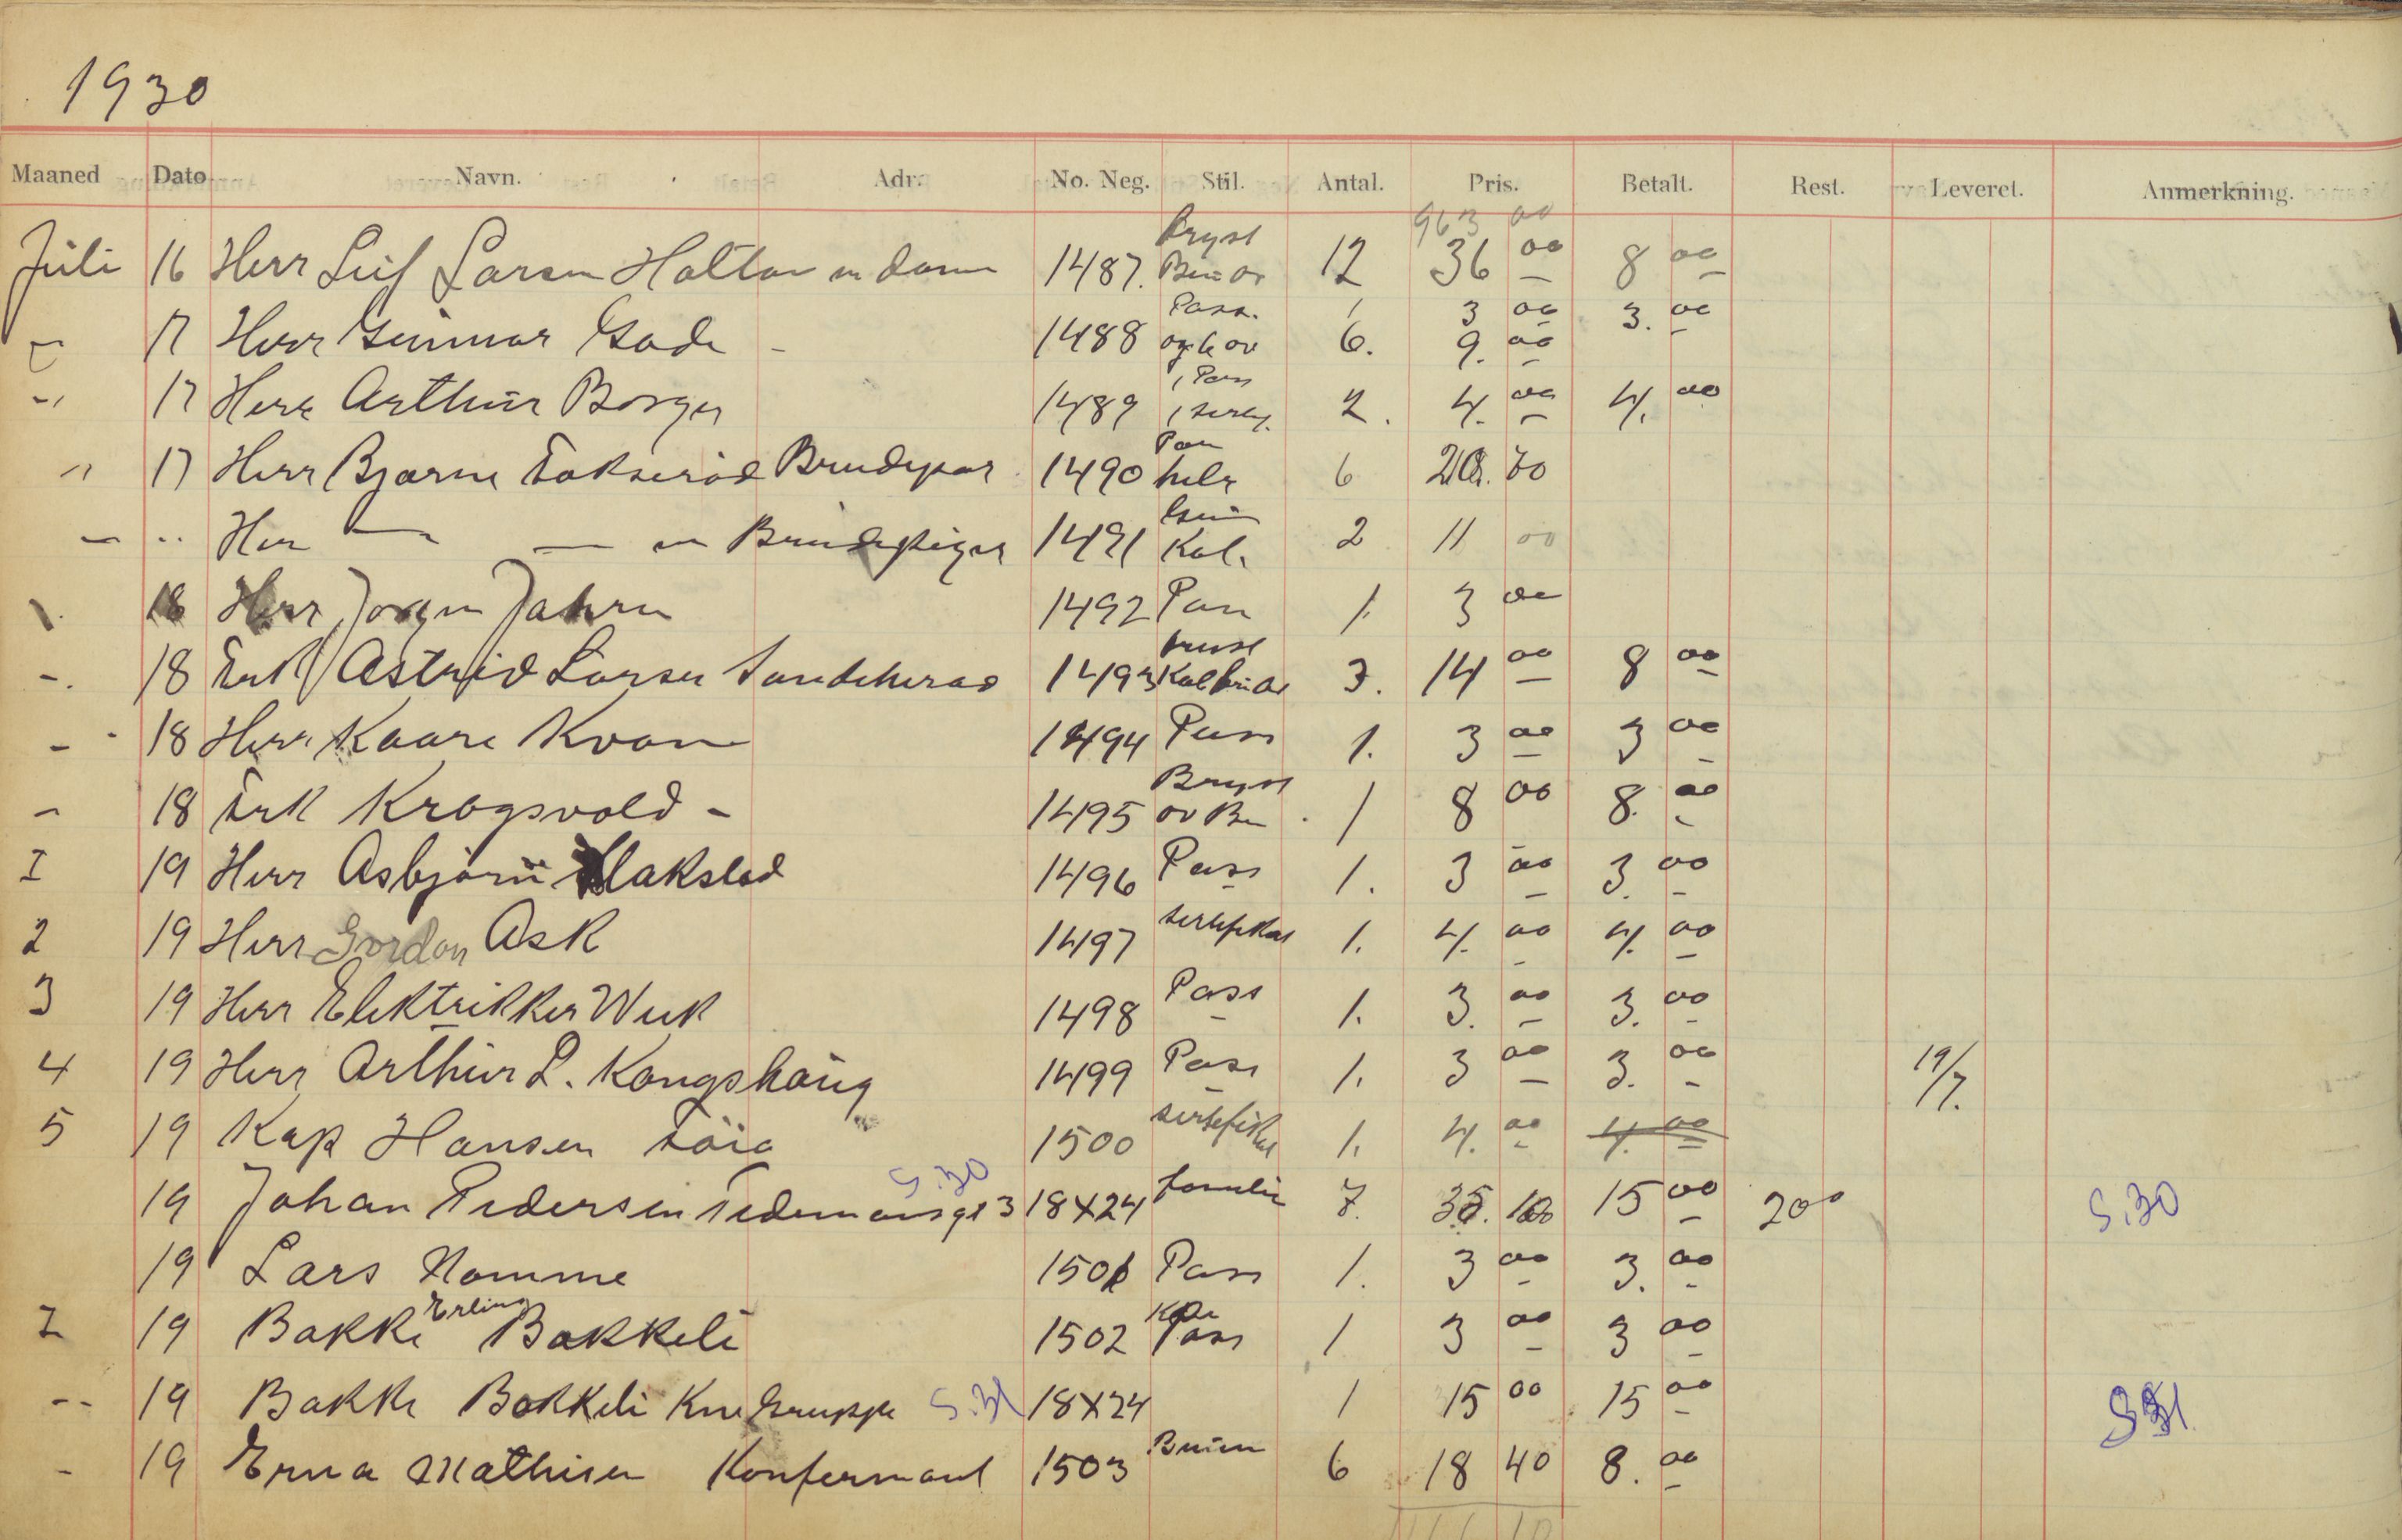 1930
Maaned Dato Navn. Adr. No. Neg. Stil. Antal. Pris. Betalt. Rest. Leveret. Anmerkning.
963 00
Juli 16 Herr Leif Larsen 1487. Bryst 12 36 00 8 00
" 17 Herr Gunnar Gade - 1488 Pass. 1 3 00 3. 00
6. 9. 00
" 17 Herr Arthur Borger 1489 1 Pass 2. 4. 00 4. 00
" 17 Herr Bjarne Brudepar 1490 hele 6 70
— " Herr — — Brudepiger 1491 Kab. 2 11 00
18 Herr Jørgen Jahren 1492 Pass 1. 3 00
-. 18 Frk Astrid Larsen Sandeherad 1493 Kab 3. 14 00 8 00
- 18 Herr Kaare Kvam 1494 Pass 1. 3 00 3 00
- 18 Frk Krogsvold - 1495 Bryst 1 8 00 8. 00
I 19 Herr Asbjørn 1496 Pass 1. 3 00 3. 00
2 19 Herr Gordon Ask 1497 sertefikat 1. 4. 00 4. 00
3 19 Herr Elektrikker 1498 Pass 1. 3. 00 3. 00
4 19 Herr Arthur L. Kongshaug 1499 Pass 1. 3 00 3. 00 19/7.
5 19 Kap Hansen 1500 sertefikat 1. 4. 00 4. 00
19 Johan Pedersen Tedemansgt 3 S.30 18X24 Familie 7. 35. 15 00 20 00 S.30
19 Lars Namme 1501 Pass 1. 3 00 3. 00
I 19 Bakke Erling Bakkeli 1502 Pass 1 3 00 3 00
-- 19 Bakke Bakkeli Kne Gruppe S.31 18X24 1 15 00 15 00 S31
- 19 Erna Mathisen Konfermant 1503 6 18 40 8. 00